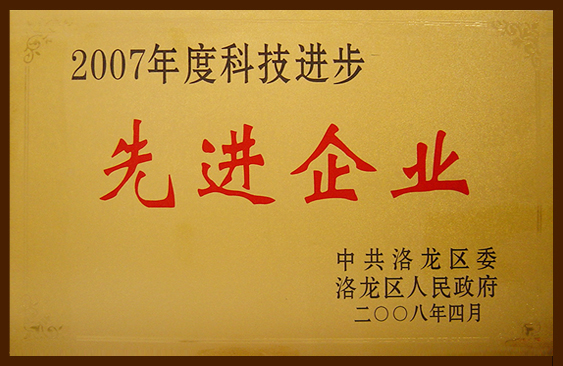 2007年度科技进步
先进企业
中共洛龙区委
洛龙区人民政府
二〇〇八年四月